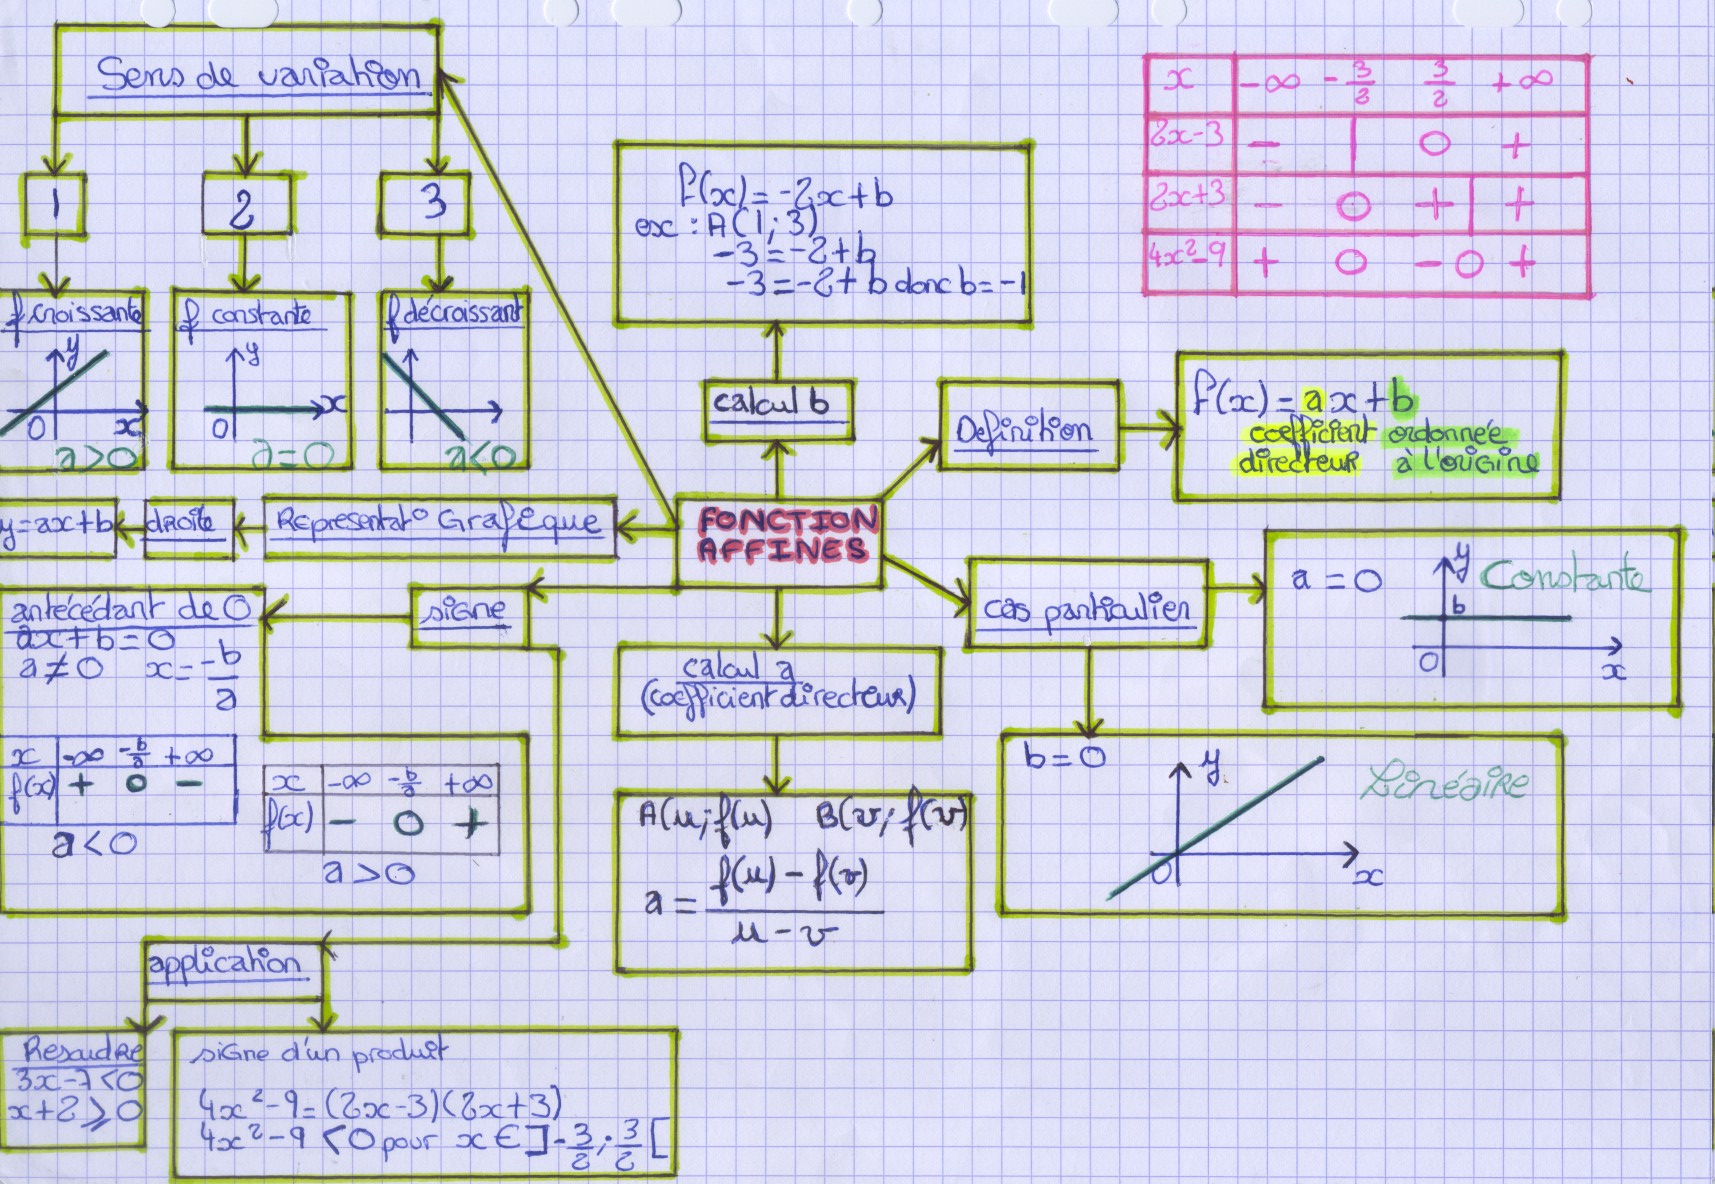 Sens de variation
1
2
3
f croissante
y
0
x
a>0
f constante
y
0
x
a=0
f décroissant
a<0
f(x)=-2x+b
ex : A(1;3)
-3=-2+b
-3=-2+b donc b=-1
calcul b
x -∞ -3/2 3/2 +∞
2x-3 - | 0 +
2x+3 - 0 + | +
4x²-9 + 0 - 0 +
Definition
f(x)=ax+b
coefficient ordonnée
directeur à l'origine
y=ax+b
droite
Representat° Grafique
FONCTION
AFFINES
signe
antécédant de 0
ax+b=0
a≠0 x=-b/a
x -∞ -b/a +∞
f(x) + 0 -
a<0
x -∞ -b/a +∞
f(x) - 0 +
a>0
calcul a
(coefficient directeur)
A(u;f(u) B(v;f(v)
a = f(u)-f(v) / u-v
cas particulier
a=0
y
Constante
b
0
x
b=0
y
Linéaire
0
x
application
Resoudre
3x-7<0
x+2⩾0
signe d'un produit
4x²-9=(2x-3)(2x+3)
4x²-9 <0 pour x∈]-3/2;3/2[